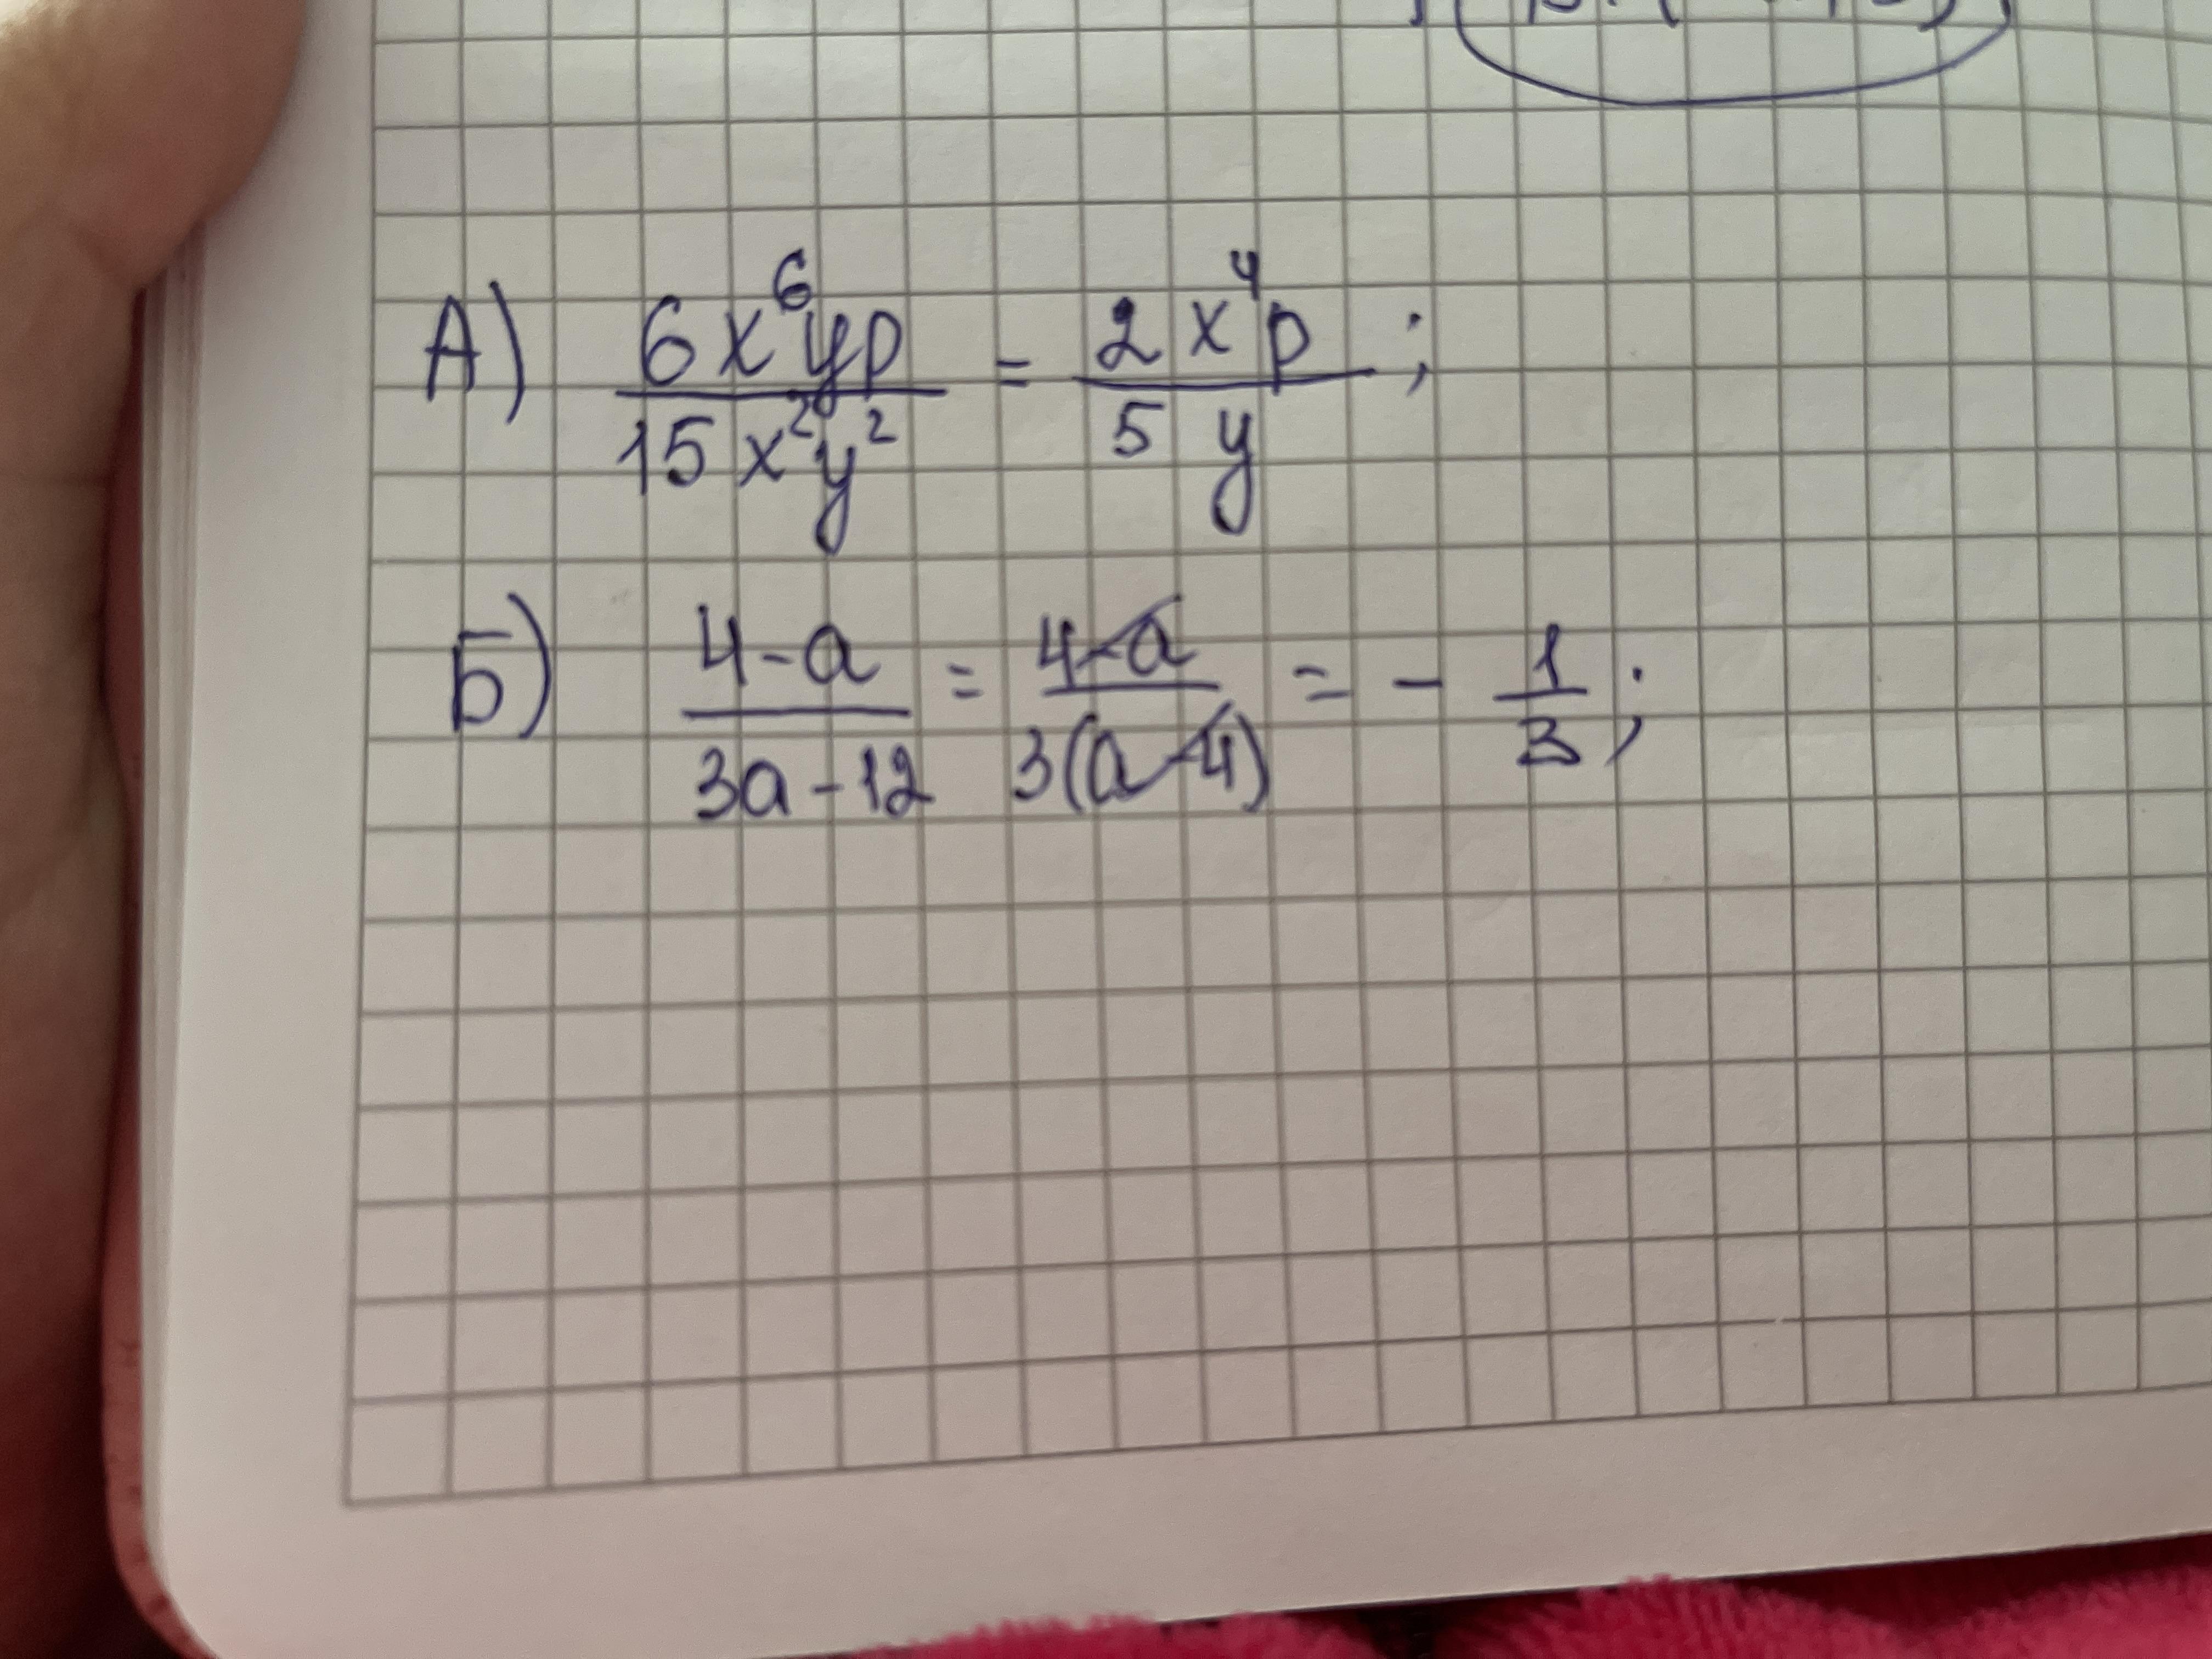 А) 6x⁶yp / 15x²y² = 2x⁴p / 5y ;
Б) 4-a / 3a-12 = 4-a / 3(a-4) = - 1/3 ;